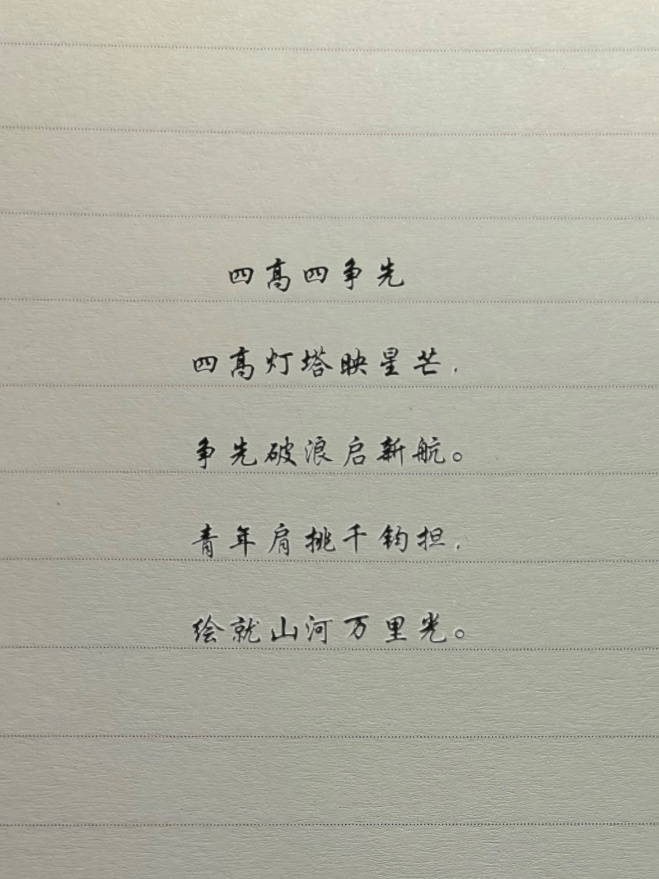 四高四争先
四高灯塔映星芒，
争先破浪启新航。
青年肩挑千钧担，
绘就山河万里光。